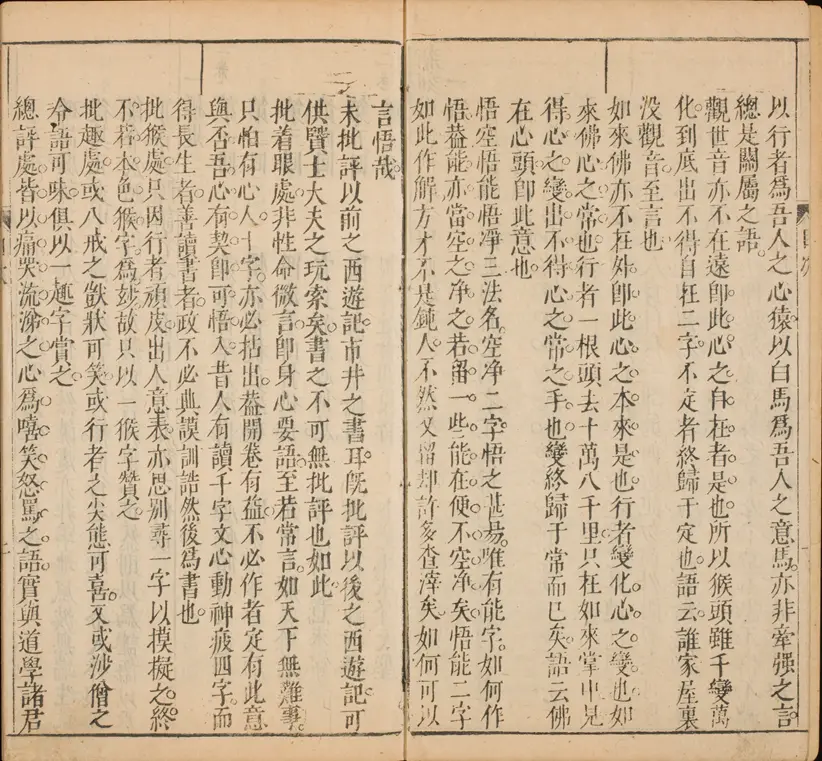 以行者為吾人之心猿以白馬為吾人之意馬亦非牽强之言
總是關屬之語
觀世音亦不在遠卽此心之自在者是也所以猴頭雖千變萬
化到底出不得自在二字不定者終歸于定也語云誰家屋裏
没觀音至言也
如來佛亦不在外卽此心之本來是也行者變化心之變也如
來佛心之常也行者一根頭去十萬八千里只在如來掌中見
得心之變出不得心之常之手也變終歸于常而已矣語云佛
在心頭卽此意也
悟空悟能悟淨三法名空净二字悟之甚易唯有能字如何作
悟葢能亦當空之净之若留一些能在便不空净矣悟能二字
如此作解方才不是鈍人不然又留却許多查滓矣如何可以
言悟哉
未批評以前之西遊記市井之書耳既批評以後之西遊記可
供賢士大夫之玩索矣書之不可無批評也如此
批着眼處非性命微言卽身心要語至若常言如天下無難事
只怕有心人十字亦必拈出葢開卷有益不必作者定有此意
與否吾心有契卽可悟入昔人有讀千字文心動神疲四字而
得長生者善讀書者政不必典謨訓誥然後為書也
批猴處只因行者頑皮出人意表亦思别尋一字以摸擬之終
不若本色猴字為妙故只以一猴字贊之
批趣處或八戒之獃狀可笑或行者之尖態可喜又或沙僧之
冷語可味俱以一趣字賞之
總評處皆以痛哭流涕之心為嘻笑怒罵之語實與道學諸君